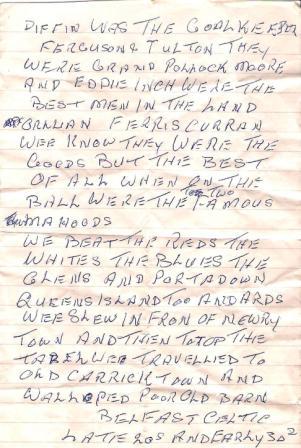 DIFFIN WAS THE GOALKEEPER
FERGUSON & FULTON THEY
WERE GRAND POLLOCK MOORE
AND EDDIE INCH WERE THE
BEST MEN IN THE LAND
FERRIS CURRAN
WEE KNOW THEY WERE THE
GOODS BUT THE BEST
OF ALL WHEN ON THE
BALL WERE THE TWO FAMOUS
MAHOODS
WE BEAT THE REDS THE
WHITES THE BLUES THE
GLENS AND PORTADOWN
QUEENS ISLAND TOO AND ARDS
WEE SLEW IN FRON OF NEWRY
TOWN AND THEN TO TOP THE
WEE TRAVELLED TO
OLD CARRICK TOWN AND
WALLOPED POOR OLD BARN
BELFAST CELTIC
LATE 20S AND EARLY 30S